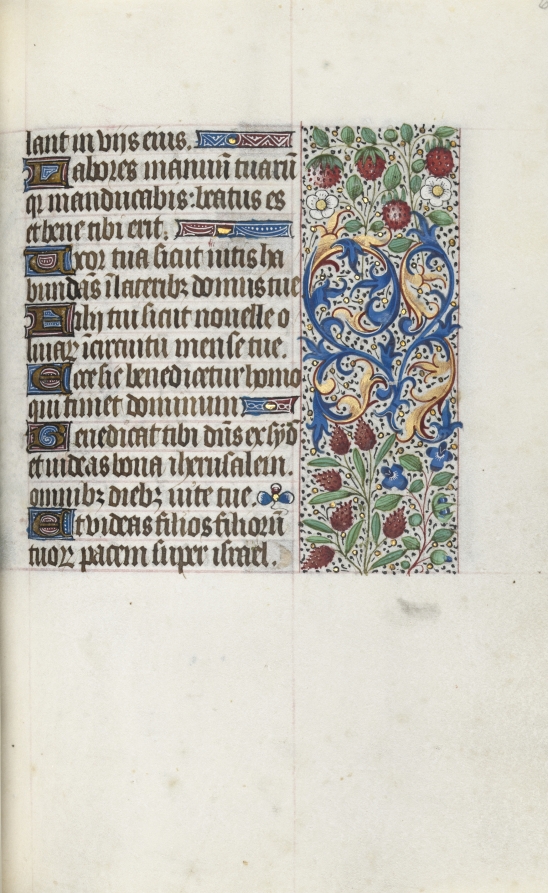 lant in viis eius.
Labores manuū tuarū
qꝛ manducabis: beatus es
et bene tibi erit.
Uxor tua sicut uitis ha
bundās ī lateribꝫ domus tue
Filii tui sicut nouelle o
liuaꝝ ī circuitu mense tue.
Ecce sic benedicetur homo
qui timet dominum
Benedicat tibi dn̄s ex syō
et uideas bona iherusalem.
omnibꝫ diebꝫ uite tue.
Et videas filios filiorū
tuoꝝ pacem super israel.